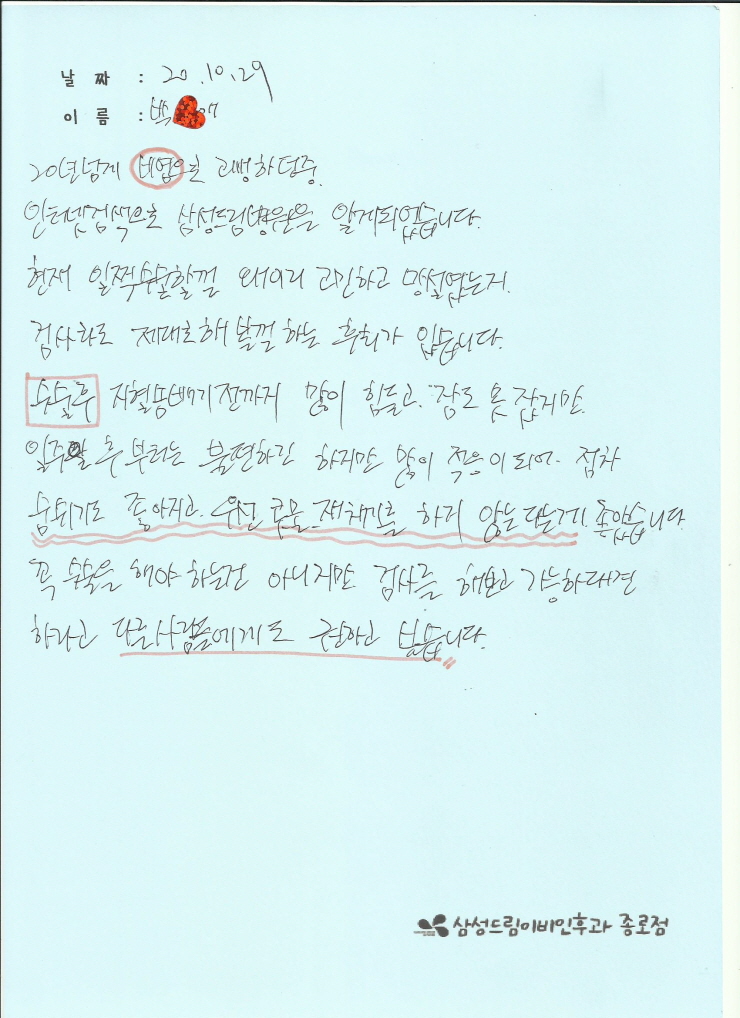 날 짜 : 20.10.29
이 름 : 박
20년넘게 비염으로 고생하던중
인터넷검색으로 삼성드림병원을 알게되었습니다.
현재 일찍수술할껄 왜이리 고민하고 망설였는지.
검사라도 제대로해볼껄 하는 후회가 있습니다.
수술후 지혈솜빼기전까지 많이 힘들고. 잠도 못 잤지만
일주일 후 부터는 불편하긴 하지만 많이 적응이되어. 점차
숨쉬기도 좋아지고. 우선 콧물.재채기를 하지 않는다는게 좋았습니다.
꼭 수술을 해야 하는건 아니지만 검사를 해보고 가능하다면
하라고 다른사람들에게도 권하고 싶습니다.
삼성드림이비인후과 종로점